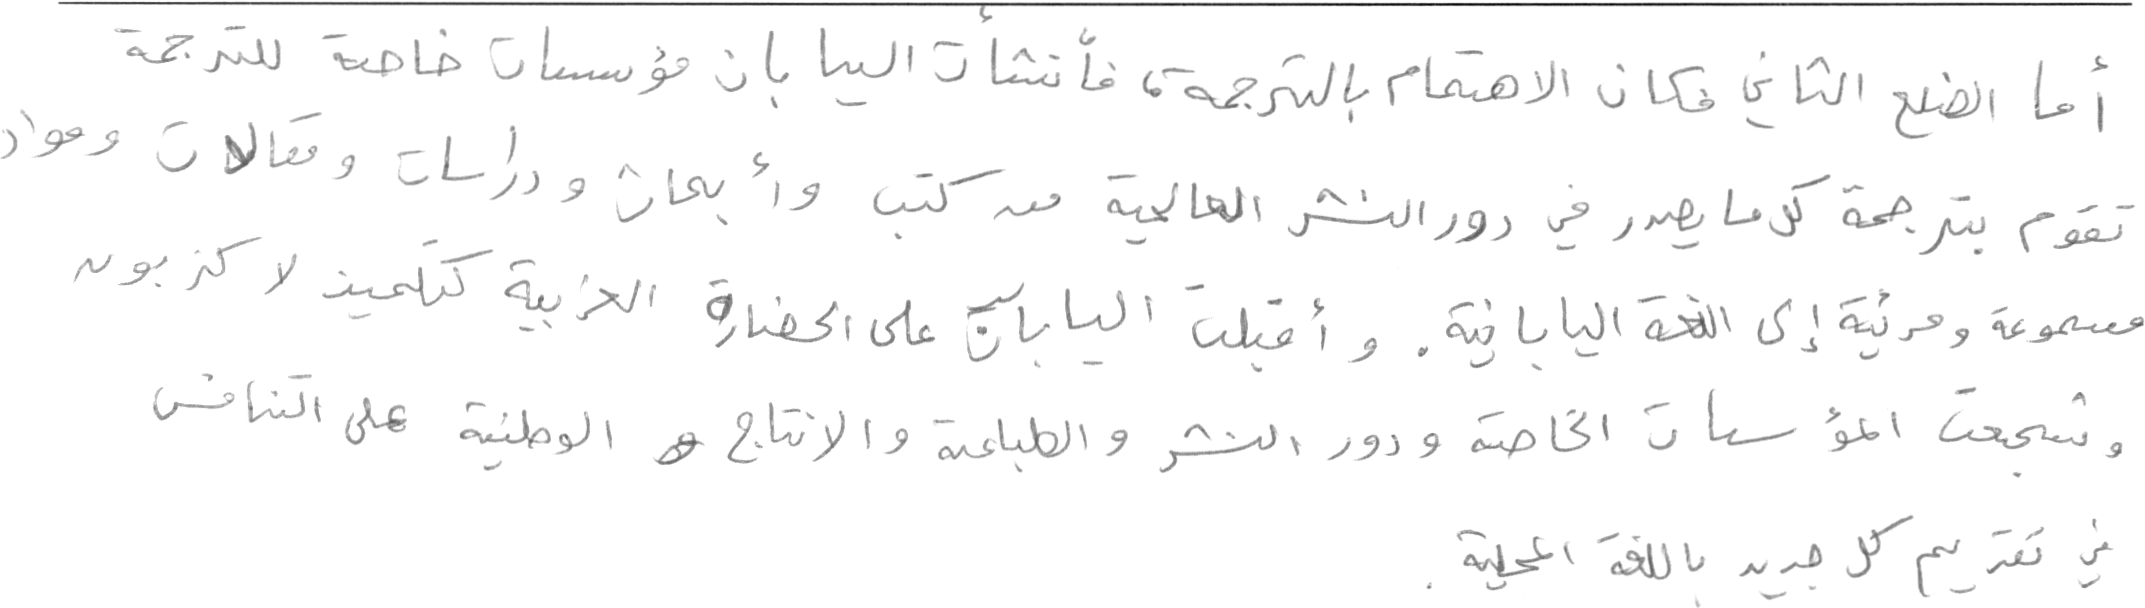 أما الضلع الثاني فكان الاهتمام بالترجمة، فأنشأت اليابان مؤسسات خاصة للترجمة
تقوم بترجمة كل ما يصدر في دور النشر العالمية من كتب وأبحاث ودراسات ومقالات ومواد
مسموعة ومرئية إلى اللغة اليابانية. وأقبلت اليابان على الحضارة الغربية كتلميذ لا كزبون
وشجعت المؤسسات الخاصة ودور النشر والطباعة والانتاج الوطنية على التنافس
في تقديم كل جديد باللغة المحلية.